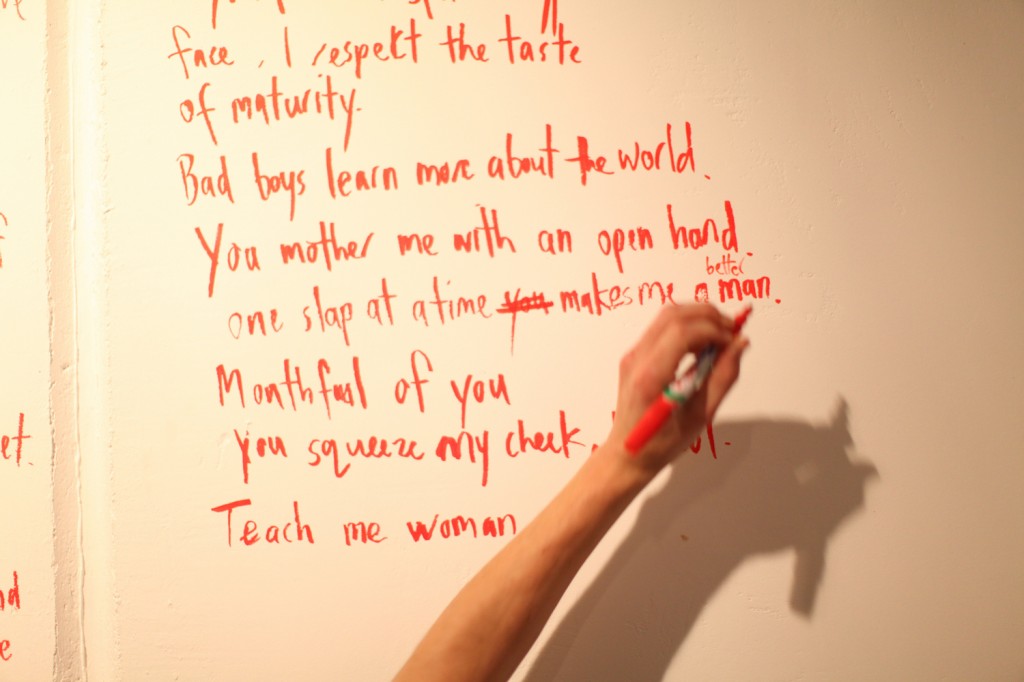 face, I respekt the taste
of maturity.
Bad boys learn more about the world.
You mother me with an open hand.
better
one slap at a time you makes me a man.
Monthfual of you
you squeeze my cheek.
Teach me woman
et.